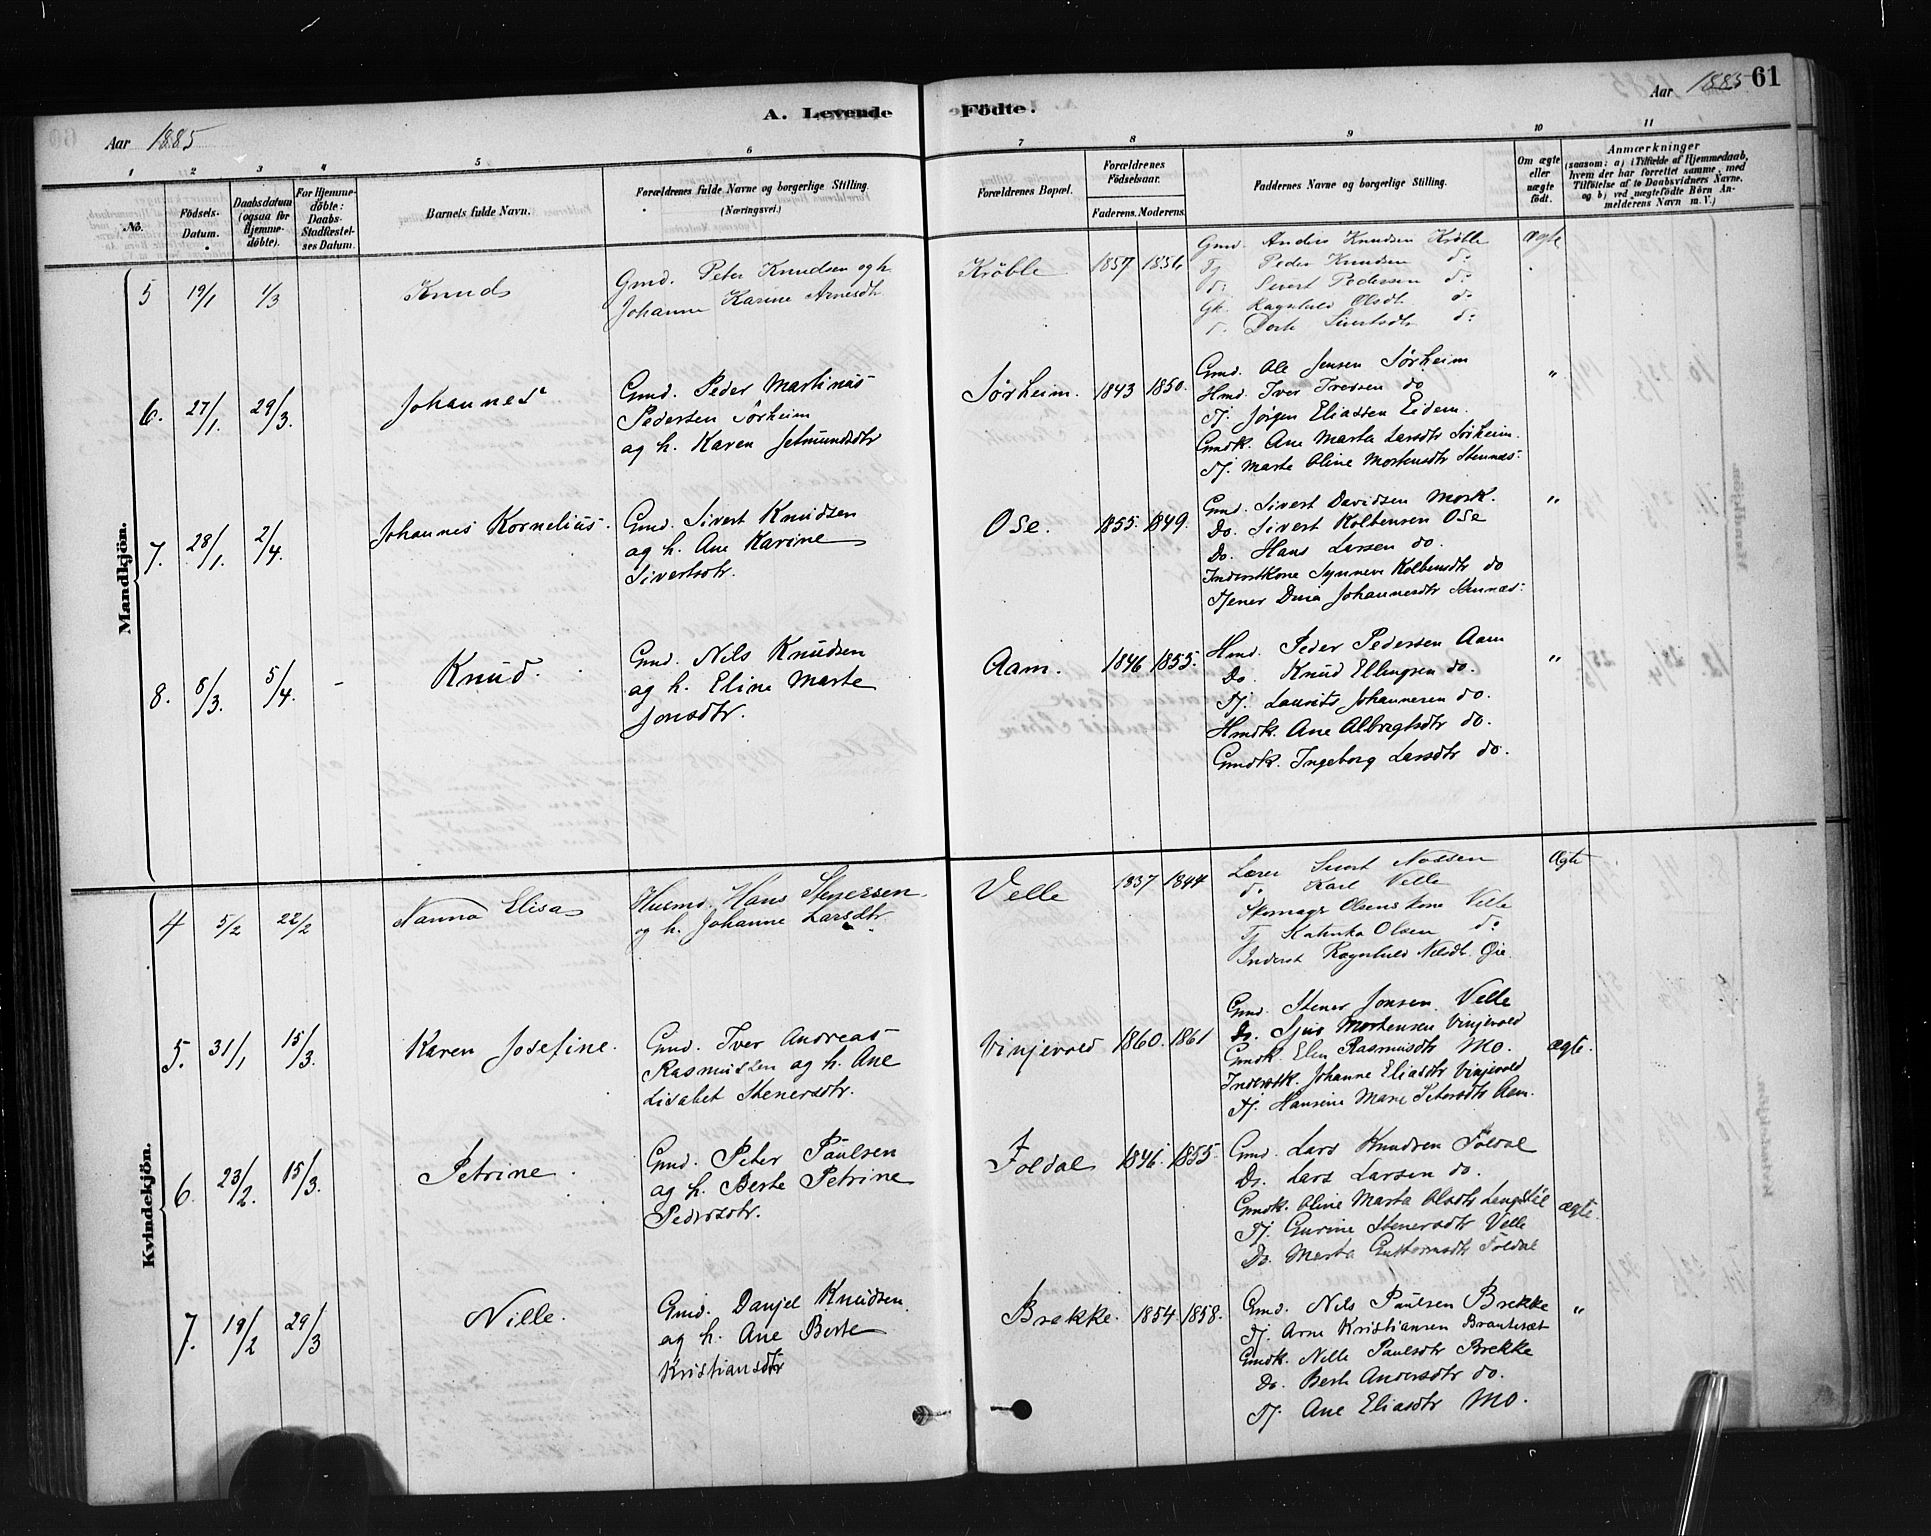 61
A. Levende Födte.
Aar 1885
Aar 1885
1 2 3 4 5 6 7 8 9 10 11
No.
Födsels-Datum.
Daabsdatum (ogsaa for Hjemme-döbte).
For Hjemme-döbte: Daabs-Stadfæstel-ses Datum.
Barnets fulde Navn.
Forældrenes fulde Navne og borgerlige Stilling. (Næringsvei.)
Forældrenes Bopæl.
Forældrenes Födselsaar.
Faderens. Moderens.
Faddernes Navne og borgerlige Stilling.
Om ægte eller uægte født.
Anmærkninger
(saasom: a) i Tilfælde af Hjemmedaab, hvem der har forrettet samme, med Tilföielse af to Daabsvidners Navne, og b) ved uægtefödte Börn Anmelderens Navn m. V.)
Mandkjön.
5 19/1 1/3 Knud
Gmd. Peter Knudsen og h.
Johanne Karine Arnesdtr
Kröble 1857 1856
Gmd. Anders Knudsen Kröble
Tj Peder Knudsen do
do Sivert Pedersen do
Gk. Ragnhild Olsdt. do
Dorte Sivertsdtr do
ægte
6. 27/1. 29/3. Johannes
Gmd. Peder Martinus
Pedersen Sørheim
og h. Karen Jetmundsdtr
Sørheim. 1843 1850.
Gmd. Ole Jensen Sørheim
Hmd. Iver Iversen do
Tj. Jørgen Eliassen Eidem.
Gmdk. Ane Marta Larsdtr Sørheim.
Tj. Marte Oline Mortensdtr Stennæs.
"
7. 28/1. 2/4. Johannes Kornelius.
Gmd. Sivert Knudsen
og h. Ane Karine
Sivertsdtr.
Ose. 1855. 1849.
Gmd. Sivert Davidsen Mork.
Do. Sivert Kolbensen Ose
Do. Hans Larsen do.
Inderstkone Synneve Kolbensdtr do
Tjener Dina Johannesdtr Stennæs.
"
8. 8/3. 5/4. - Knud.
Gmd. Nils Knudsen
og h. Eline Marte
Jonsdtr.
Aam. 1846 1855.
Hmd. Peder Pedersen Aam
Do. Knud Ellingsen do.
Tj. Laurits Johannesen do.
Hmdk. Ane Albregtsdtr do.
Gmdk. Ingeborg Larsdtr do.
"
Kvindekjön.
4 5/2 22/2 Nanna Elisa
Husmd. Hans Stenersen
og h. Johanne Larsdtr
Velle 1837 1844
Lærer Sivert Nossen
do Karl Velle
Skomager Olsens kone Velle
Tj Katinka Olsen do
Inderst Ragnhild Nilsdt. Øie
Ægte
5. 31/1 15/3 Karen Josefine.
Gmd. Iver Andreas
Rasmussen og h. Ane
Lisabet Stenersdtr.
Vinjevold 1860. 1861
Gmd. Stener Jonsen Velle
Do. Sjur Mortensen Vinjevold
Gmdk. Elen Rasmusdtr Mo.
Inderstk. Johanne Eliasdtr Vinjevold
Tj. Hansine Marie Petersdtr Aam.
ægte.
6. 23/2. 15/3. Petrine.
Gmd. Peter Paulsen
og h. Berte Petrine
Pedersdtr.
Foldal 1846. 1855.
Gmd. Lars Knudsen Foldal
Do. Lars Larsen do.
Gmdk. Oline Marta Olsdtr
Tj. Gurine Stenersdtr Velle
Do. Marta Guttormsdtr Foldal
ægte.
7. 19/2 29/3 Nille.
Gmd. Danjel Knudsen
og h. Ane Berte
Kristiansdtr
Brekke. 1854 1858.
Gmd. Nils Paulsen Brekke
Tj. Arne Kristiansen
Gmdk. Nille Paulsdtr Brekke
Do. Berte Andersdtr do.
Tj. Ane Eliasdtr Mo.
"